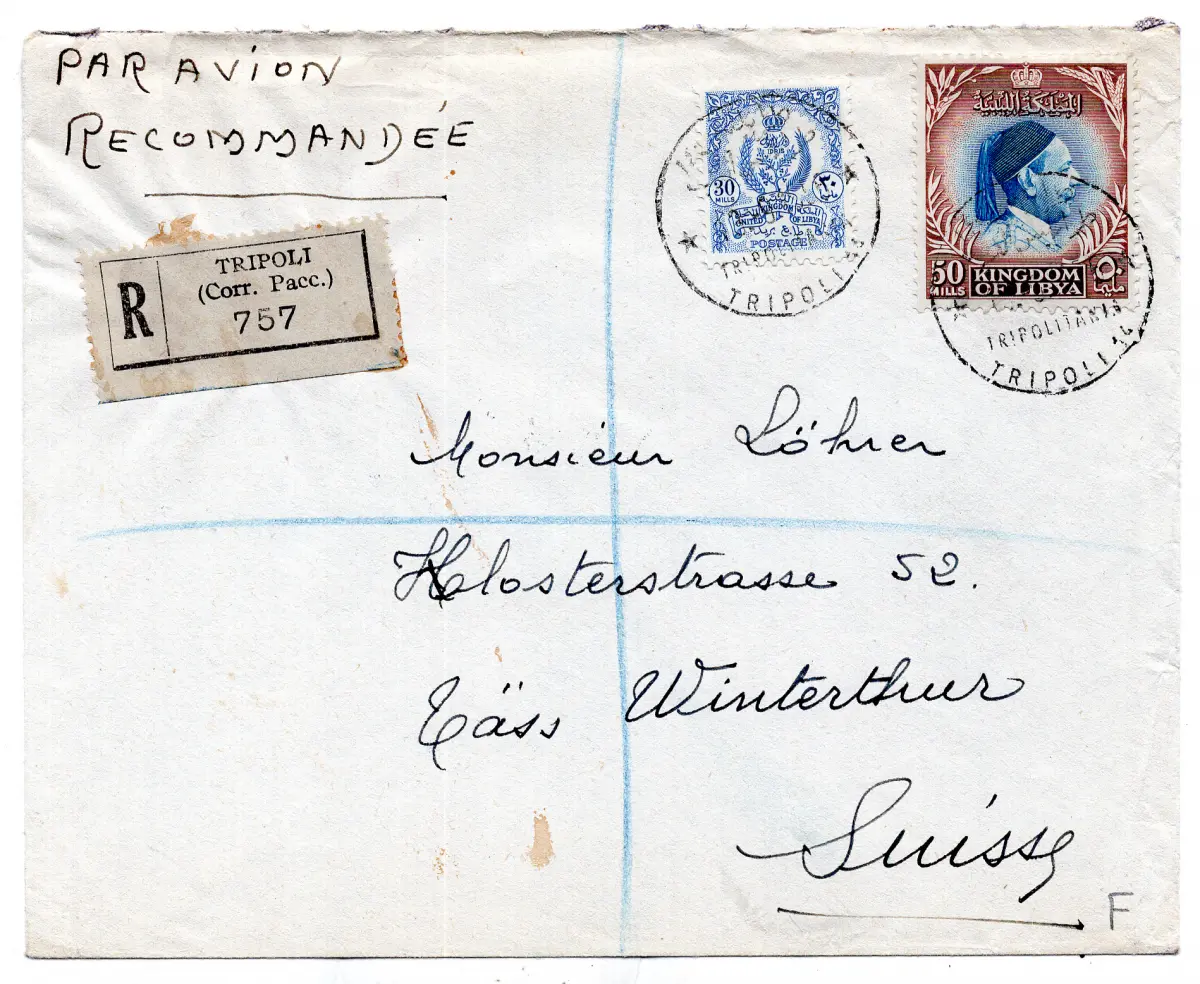 PAR AVION
RECOMMANDÉE
R
TRIPOLI
(Corr. Pacc.)
757
IDRIS
30
MILLS
٣٠
UNITED KINGDOM OF LIBYA
POSTAGE
TRIPOLI
المملكة الليبية
50
MILLS
KINGDOM
OF LIBYA
٥٠
مليما
TRIPOLITANIA
TRIPOLI
Monsieur Löhrer
Klosterstrasse 52.
Täss Winterthur
Suisse
F